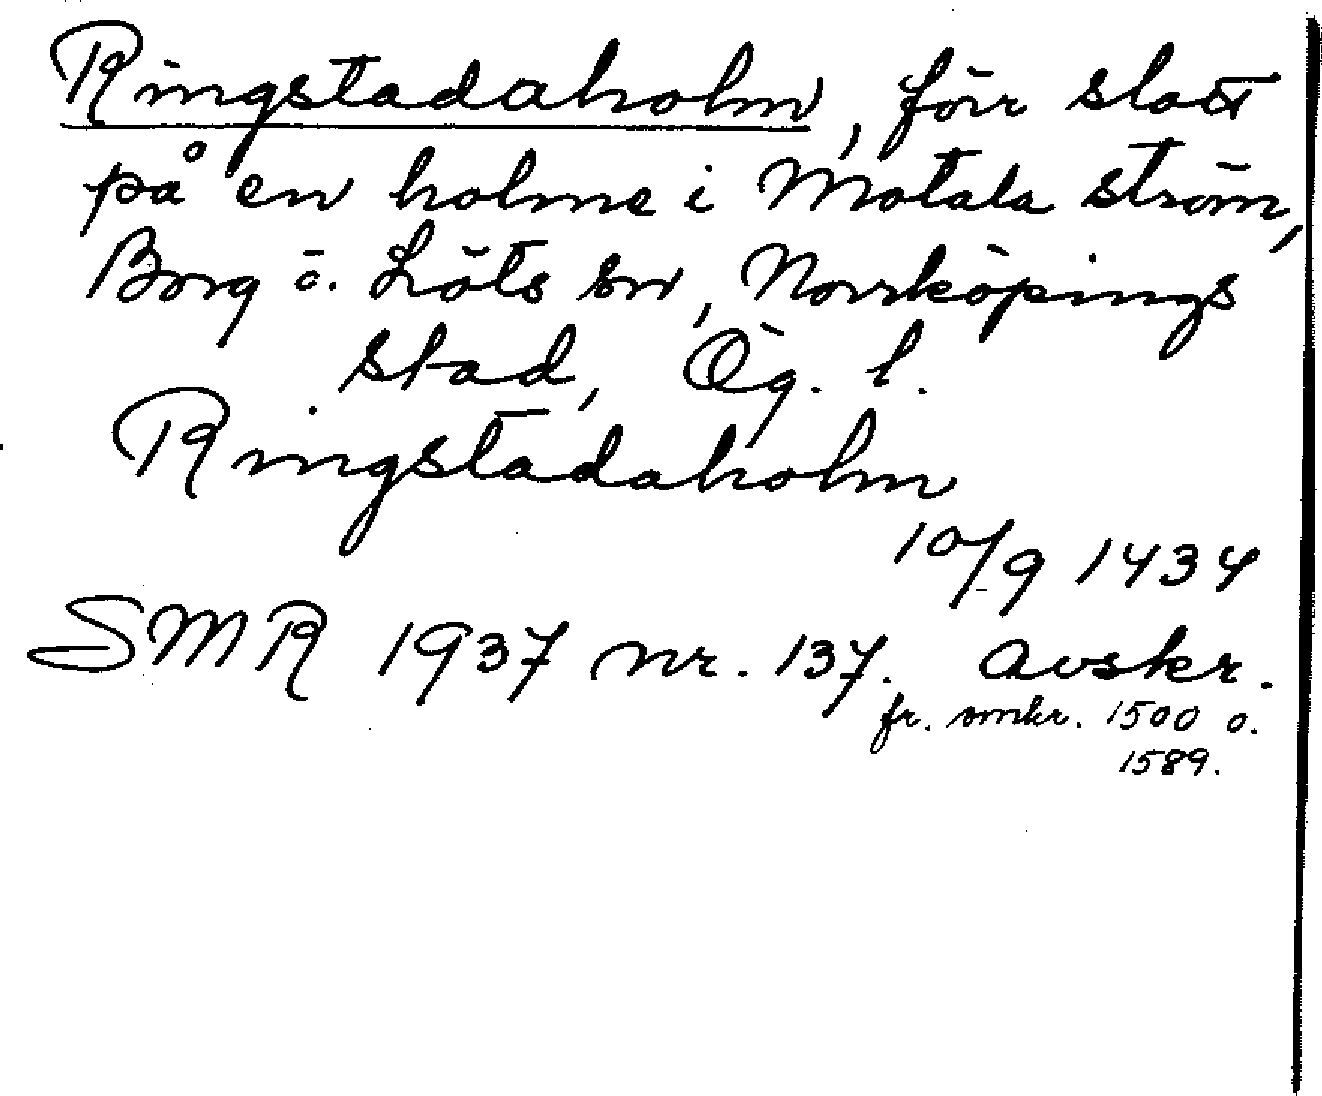 Ringstadaholm, förr slott
på en holme i Motala ström,
Borg o. Löts sn, Norrköpings
stad, Ög. l.
Ringstadaholm
10/9 1434
SMR 1937 nr. 137. Avskr.
fr. omkr. 1500 o.
1589.